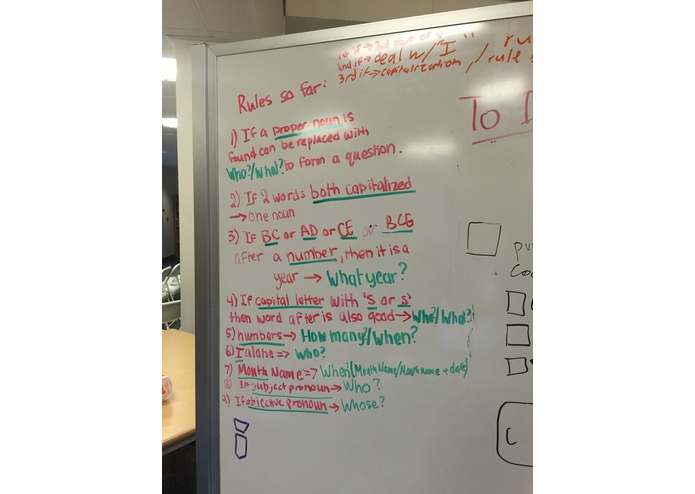 1st if → 2nd part of
2nd if → deal w/ "I"
3rd if → capitalization / rule
ru
Rules so far:
To
1) If a proper noun is
found can be replaced with
Who?/What? to form a question.
2) If 2 words both capitalized
→ one noun
3) If BC or AD or CE or BCE
after a number, then it is a
year → What year?
4) If capital letter with 's or s'
then word after is also good → Who?/What?
5) numbers → How many?/when?
6) I alone => Who?
7) Month Name => When? (Month Name/Month Name + date)
8) If subject pronoun → Who?
9) If objective pronoun → Whose?
C